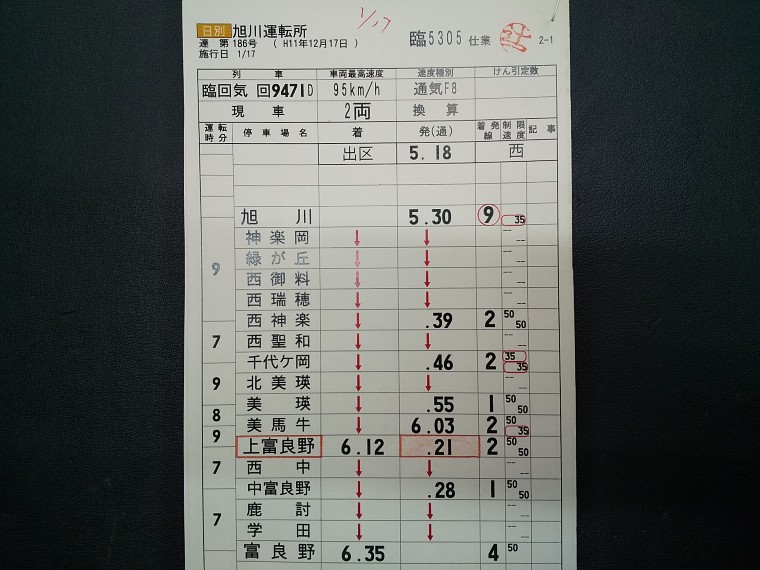 1/17
日別 旭川運転所
達 第186号 ( H11年12月17日 ) 臨5305 仕業 2-1
施行日 1/17
列 車 車両最高速度 速度種別 けん引定数
臨回気 回9471D 95km/h 通気F8
現 車 2両 換 算
運転時分 停車場名 着 発(通) 着発線 制限速度 記事
出区 5.18 西
旭 川 5.30 9 35
神楽岡 ↓ ↓ -- --
緑が丘 ↓ ↓ -- --
9 西御料 ↓ ↓ -- --
西瑞穂 ↓ ↓ -- --
西神楽 ↓ .39 2 50 50
7 西聖和 ↓ ↓ -- --
千代ケ岡 ↓ .46 2 35 35
9 北美瑛 ↓ ↓ -- --
美 瑛 ↓ .55 1 50 50
8 美馬牛 ↓ 6.03 2 50 35
9 上富良野 6.12 .21 2 50 50
7 西 中 ↓ ↓ -- --
中富良野 ↓ .28 1 50 50
7 鹿 討 ↓ ↓ -- --
学 田 ↓ ↓ -- --
富良野 6.35 4 50